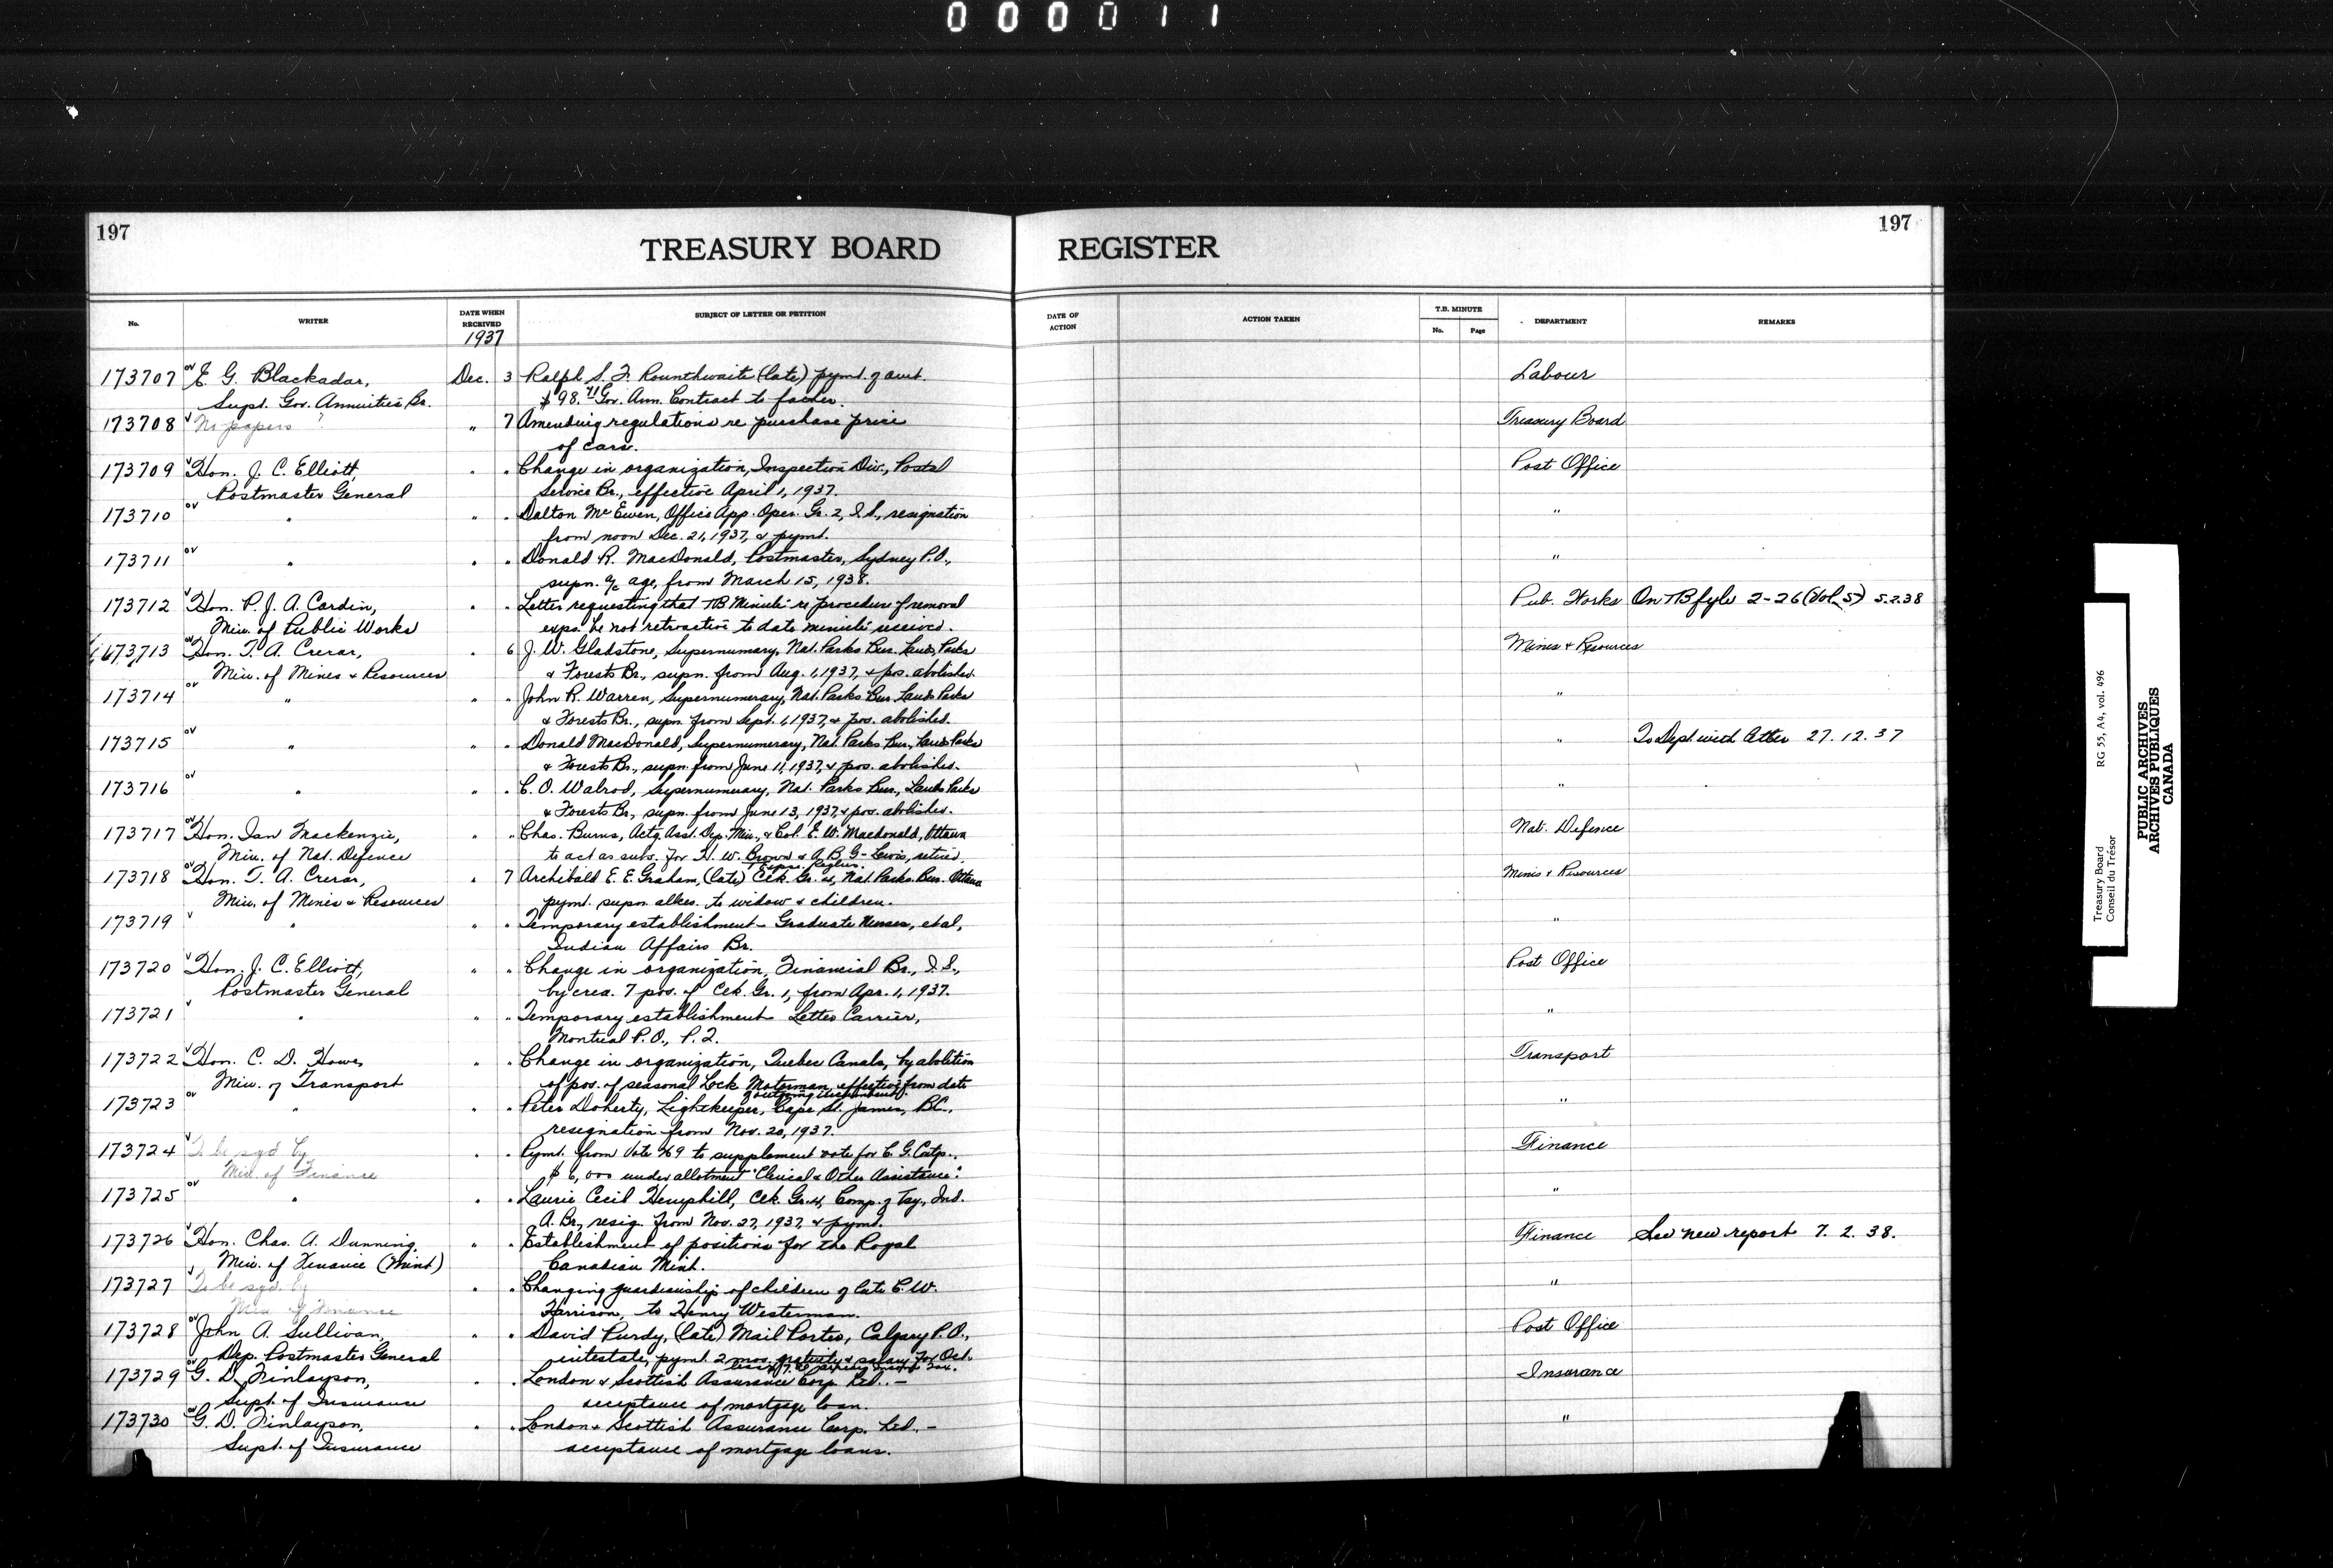 000011
197
197
TREASURY BOARD REGISTER
No. WRITER DATE WHEN RECEIVED SUBJECT OF LETTER OR PETITION DATE OF ACTION ACTION TAKEN T.B. MINUTE No. Page DEPARTMENT REMARKS
1937
173707 E. G. Blackadar, Dec. 3 Ralph S. F. Rounthwaite (late) pymt. of amt. Labour
Supt. Gov. Annuities Br. $98.71 Gov. Ann. Contract to father.
173708 No papers ? " 7 Amending regulations re purchase price Treasury Board
of cars.
173709 Hon. J. C. Elliott, " " Change in organization, Inspection Div., Postal Post Office
Postmaster General Service Br., effective April 1, 1937.
173710 " " " Dalton McEwen, Office App. Oper. Gr. 2, I.S., resignation "
from noon Dec. 21, 1937, & pymt.
173711 " " " Donald R. MacDonald, Postmaster, Sydney P.O., "
supn. a/c age, from March 15, 1938.
173712 Hon. P. J. A. Cardin, " " Letter requesting that TB Minute re procedure of removal Pub. Works On TB fyle 2-26 (Vol. 5) 5.2.38
Min. of Public Works exps. be not retroactive to date minute received.
173713 Hon. T. A. Crerar, " 6 J. W. Gladstone, Supernumary, Nat. Parks Bur. Lands, Parks Mines & Resources
Min. of Mines & Resources & Forests Br., supn. from Aug. 1, 1937, & pos. abolished.
173714 " " " John R. Warren, Supernumerary, Nat. Parks Bur. Lands Parks "
& Forests Br., supn. from Sept. 1, 1937, & pos. abolished.
173715 " " " Donald MacDonald, Supernumerary, Nat. Parks Bur., Lands Parks " To Dept. with letter 27.12.37
& Forests Br., supn. from June 11, 1937, & pos. abolished.
173716 " " " C. O. Walrod, Supernumerary, Nat. Parks Bur., Lands Parks "
& Forests Br., supn. from June 13, 1937, & pos. abolished.
173717 Hon. Ian Mackenzie, " " Chas. Burns, Actg. Asst. Dep. Min., & Col. E. W. Macdonald, Ottawa Nat. Defence
Min. of Nat. Defence to act as subs. for H. W. Brown & A. B. G-Lewis, retired.
173718 Hon. T. A. Crerar, " 7 Archibald E. E. Graham, (late) Clk. Gr. 4, Nat. Parks. Bur. Ottawa Mines & Resources
Min. of Mines & Resources pymt. supn. allce. to widow & children.
173719 " " " Temporary establishment - Graduate Nurses, et al, "
Indian Affairs Br.
173720 Hon. J. C. Elliott, " " Change in organization, Financial Br., I.S., Post Office
Postmaster General by crea. 7 pos. of Clk. Gr. 1, from Apr. 1, 1937.
173721 " " " Temporary establishment - Letter Carrier, "
Montreal P.O., P.Q.
173722 Hon. C. D. Howe, " " Change in organization, Quebec Canals, by abolition Transport
Min. of Transport of pos. of seasonal Lock Motorman, effective from date
173723 " " " Peter Doherty, Lightkeeper, Cape St. James, B.C., "
resignation from Nov. 20, 1937.
173724 To be sgd by " " Pymt. from Vote 69 to supplement vote for C. G. Finance
Min. of Finance $6,000 under allotment "Clerical & Other Assistance".
173725 " " " Laurie Cecil Hemphill, Clk. Gr. 4, Comp. of Tsy., Ind. "
A. Br., resig. from Nov. 27, 1937, & pymt.
173726 Hon. Chas. A. Dunning, " " Establishment of positions for the Royal Finance See new report 7.2.38.
Min. of Finance (Mint) Canadian Mint.
173727 To be sgd. by " " Changing guardianship of children of late C. W. "
Min of Finance Harrison, to Henry Westerman.
173728 John A. Sullivan, " " David Purdy, (late) Mail Porter, Calgary P.O., Post Office
Dep. Postmaster General intestate, pymt. 2 mos. gratuity & salary for Oct.
173729 G. D. Finlayson, " " London & Scottish Assurance Corp. Ltd. - Insurance
Supt. of Insurance acceptance of mortgage loan.
173730 G. D. Finlayson, " " London & Scottish Assurance Corp. Ltd. - "
Supt. of Insurance acceptance of mortgage loans.
Treasury Board RG 55, A4, vol. 496
Conseil du Trésor
PUBLIC ARCHIVES
ARCHIVES PUBLIQUES
CANADA